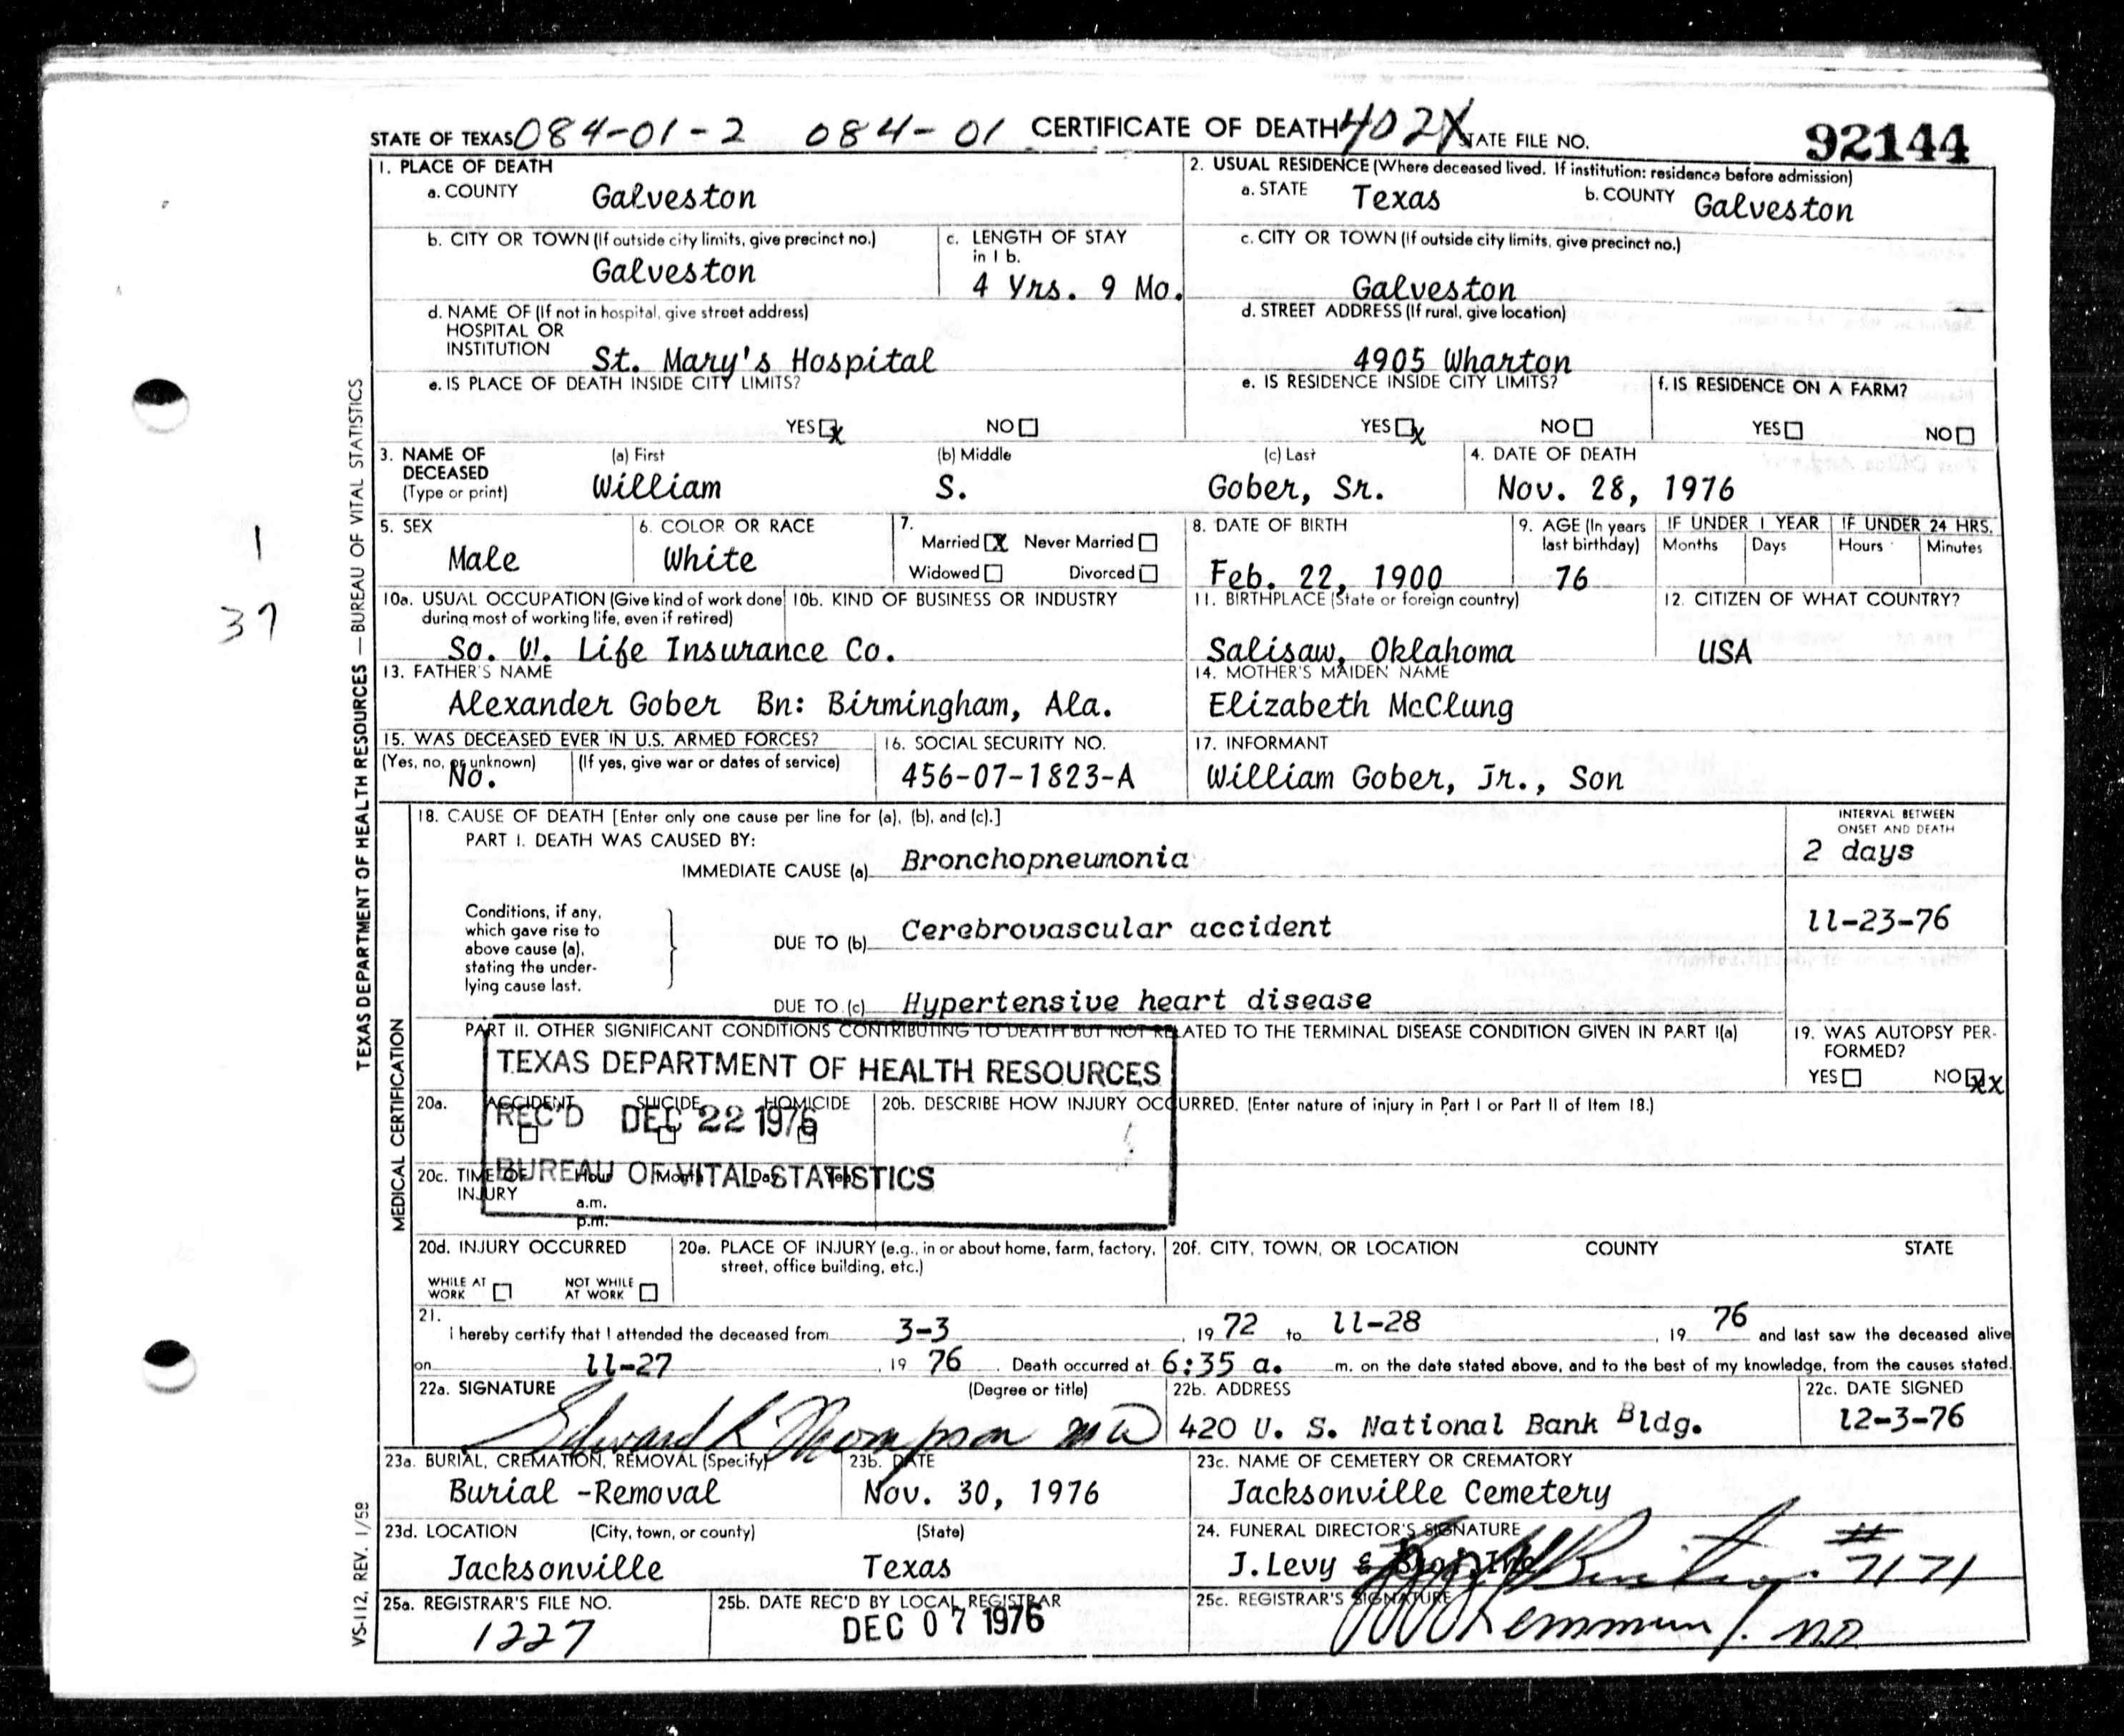 STATE OF TEXAS 084-01-2 084-01 CERTIFICATE OF DEATH 402X STATE FILE NO. 92144
1. PLACE OF DEATH
a. COUNTY Galveston
2. USUAL RESIDENCE (Where deceased lived. If institution: residence before admission)
a. STATE Texas b. COUNTY Galveston
b. CITY OR TOWN (If outside city limits, give precinct no.)
Galveston
c. LENGTH OF STAY
in 1 b.
4 Yrs. 9 Mo.
c. CITY OR TOWN (If outside city limits, give precinct no.)
Galveston
d. NAME OF (If not in hospital, give street address)
HOSPITAL OR
INSTITUTION St. Mary's Hospital
d. STREET ADDRESS (If rural, give location)
4905 Wharton
e. IS PLACE OF DEATH INSIDE CITY LIMITS?
YES x NO
e. IS RESIDENCE INSIDE CITY LIMITS?
YES x NO
f. IS RESIDENCE ON A FARM?
YES NO
3. NAME OF
DECEASED
(Type or print)
(a) First (b) Middle (c) Last
William S. Gober, Sr.
4. DATE OF DEATH
Nov. 28, 1976
5. SEX
Male
6. COLOR OR RACE
White
7.
Married X Never Married
Widowed Divorced
8. DATE OF BIRTH
Feb. 22, 1900
9. AGE (In years
last birthday)
76
IF UNDER 1 YEAR
Months Days
IF UNDER 24 HRS.
Hours Minutes
1
37
10a. USUAL OCCUPATION (Give kind of work done
during most of working life, even if retired)
10b. KIND OF BUSINESS OR INDUSTRY
So. W. Life Insurance Co.
11. BIRTHPLACE (State or foreign country)
Salisaw, Oklahoma
12. CITIZEN OF WHAT COUNTRY?
USA
13. FATHER'S NAME
Alexander Gober Bn: Birmingham, Ala.
14. MOTHER'S MAIDEN NAME
Elizabeth McClung
15. WAS DECEASED EVER IN U.S. ARMED FORCES?
(Yes, no, or unknown) (If yes, give war or dates of service)
No.
16. SOCIAL SECURITY NO.
456-07-1823-A
17. INFORMANT
William Gober, Jr., Son
18. CAUSE OF DEATH [Enter only one cause per line for (a), (b), and (c).]
PART I. DEATH WAS CAUSED BY:
IMMEDIATE CAUSE (a) Bronchopneumonia
INTERVAL BETWEEN
ONSET AND DEATH
2 days
Conditions, if any,
which gave rise to
above cause (a),
stating the under-
lying cause last.
DUE TO (b) Cerebrovascular accident
11-23-76
DUE TO (c) Hypertensive heart disease
PART II. OTHER SIGNIFICANT CONDITIONS CONTRIBUTING TO DEATH BUT NOT RELATED TO THE TERMINAL DISEASE CONDITION GIVEN IN PART I(a)
19. WAS AUTOPSY PER-
FORMED?
YES NO XX
TEXAS DEPARTMENT OF HEALTH RESOURCES
REC'D DEC 22 1976
BUREAU OF VITAL STATISTICS
20a. ACCIDENT SUICIDE HOMICIDE
20b. DESCRIBE HOW INJURY OCCURRED. (Enter nature of injury in Part I or Part II of Item 18.)
20c. TIME OF Hour Month Day Year
INJURY
a.m.
p.m.
20d. INJURY OCCURRED
WHILE AT
WORK
NOT WHILE
AT WORK
20e. PLACE OF INJURY (e.g., in or about home, farm, factory,
street, office building, etc.)
20f. CITY, TOWN, OR LOCATION COUNTY STATE
21.
I hereby certify that I attended the deceased from 3-3, 19 72 to 11-28, 19 76 and last saw the deceased alive
on 11-27, 19 76. Death occurred at 6:35 a. m. on the date stated above, and to the best of my knowledge, from the causes stated.
22a. SIGNATURE (Degree or title)
Edward R Thompson MD
22b. ADDRESS
420 U. S. National Bank Bldg.
22c. DATE SIGNED
12-3-76
23a. BURIAL, CREMATION, REMOVAL (Specify)
Burial -Removal
23b. DATE
Nov. 30, 1976
23c. NAME OF CEMETERY OR CREMATORY
Jacksonville Cemetery
23d. LOCATION (City, town, or county) (State)
Jacksonville Texas
24. FUNERAL DIRECTOR'S SIGNATURE
J. Levy & Bro., Inc. # 7171
25a. REGISTRAR'S FILE NO.
1227
25b. DATE REC'D BY LOCAL REGISTRAR
DEC 07 1976
25c. REGISTRAR'S SIGNATURE
TEXAS DEPARTMENT OF HEALTH RESOURCES — BUREAU OF VITAL STATISTICS
MEDICAL CERTIFICATION
VS-112, REV. 1/58